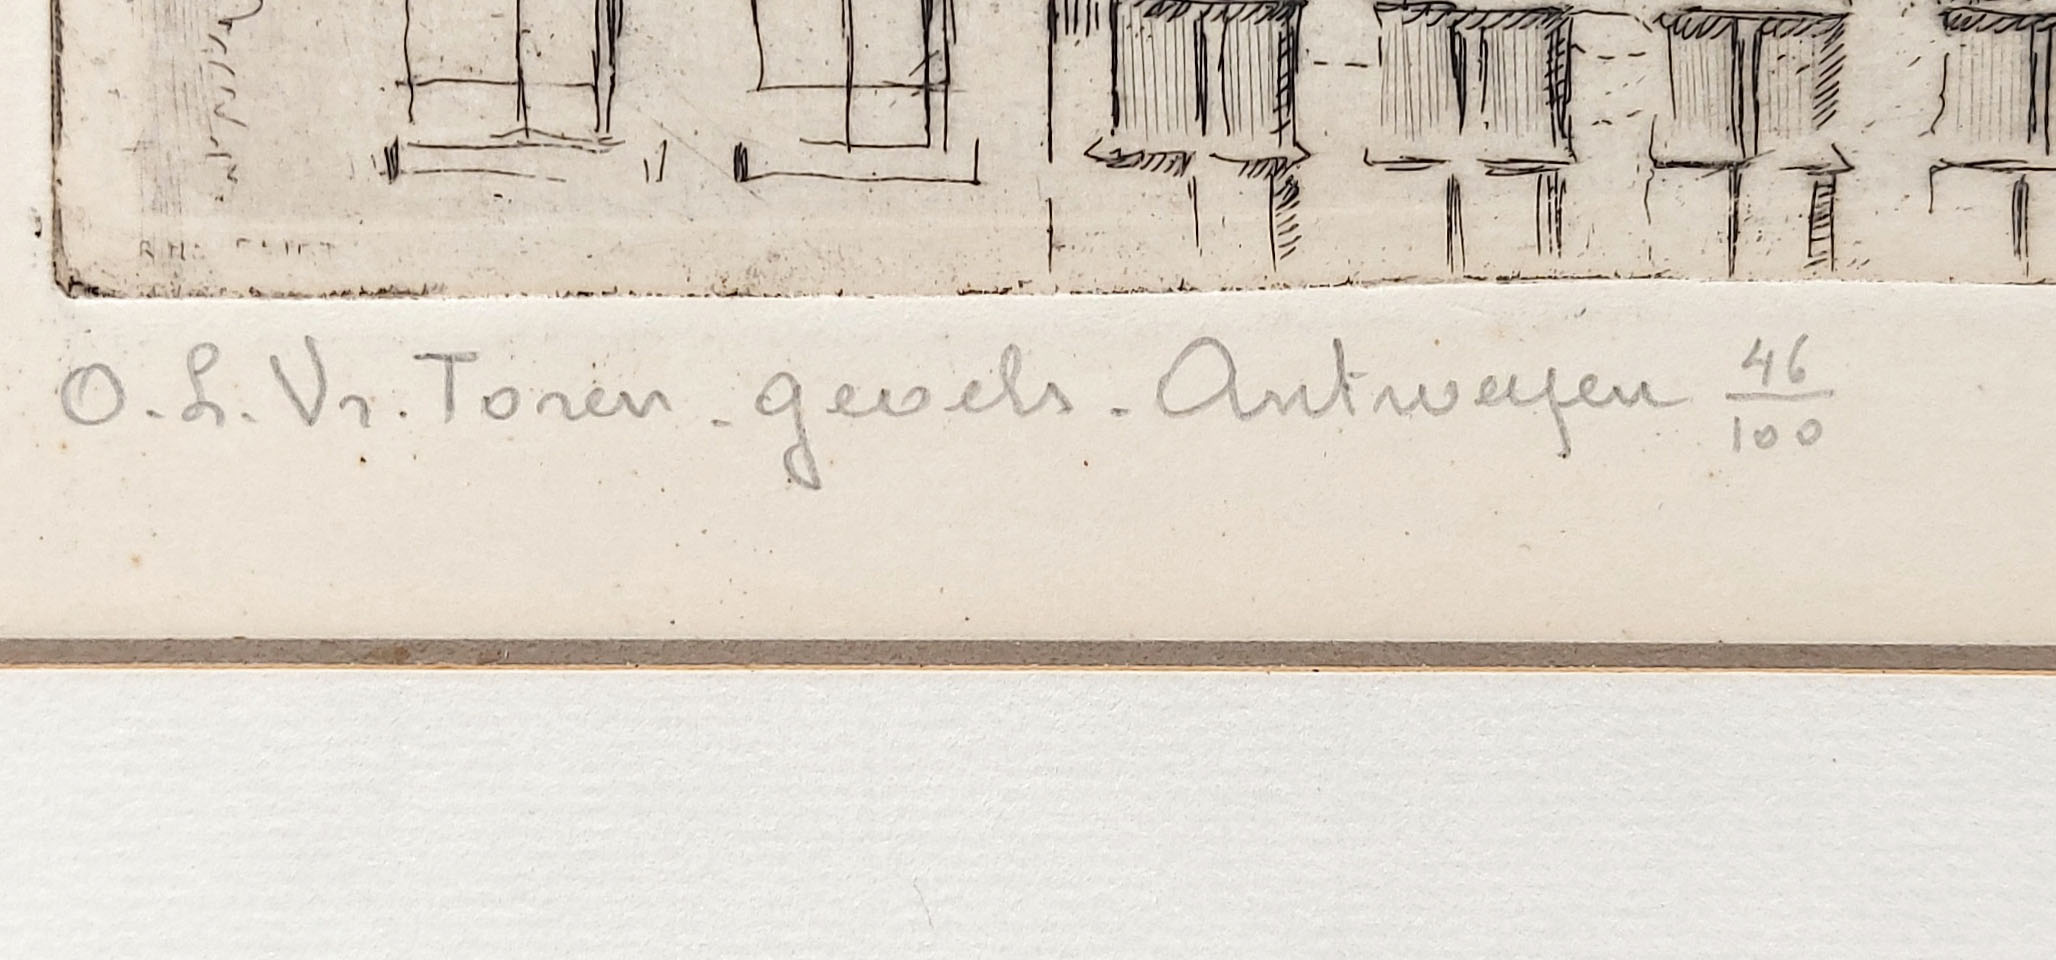 O. L. Vr. Toren - gevels. Antwerpen 46/100